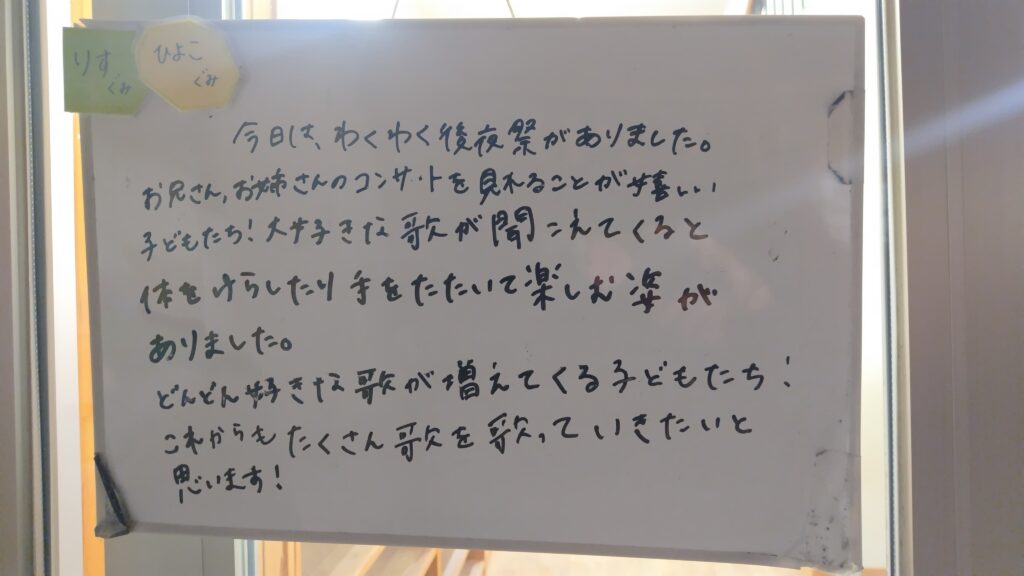 りす
ぐみ
ひよこ
ぐみ
今日は、わくわく後夜祭がありました。
お兄さん、お姉さんのコンサートを見れることが嬉しい
子どもたち！大好きな歌が聞こえてくると
体をゆらしたり手をたたいて楽しむ姿が
ありました。
どんどん好きな歌が増えてくる子どもたち！
これからもたくさん歌を歌っていきたいと
思います！